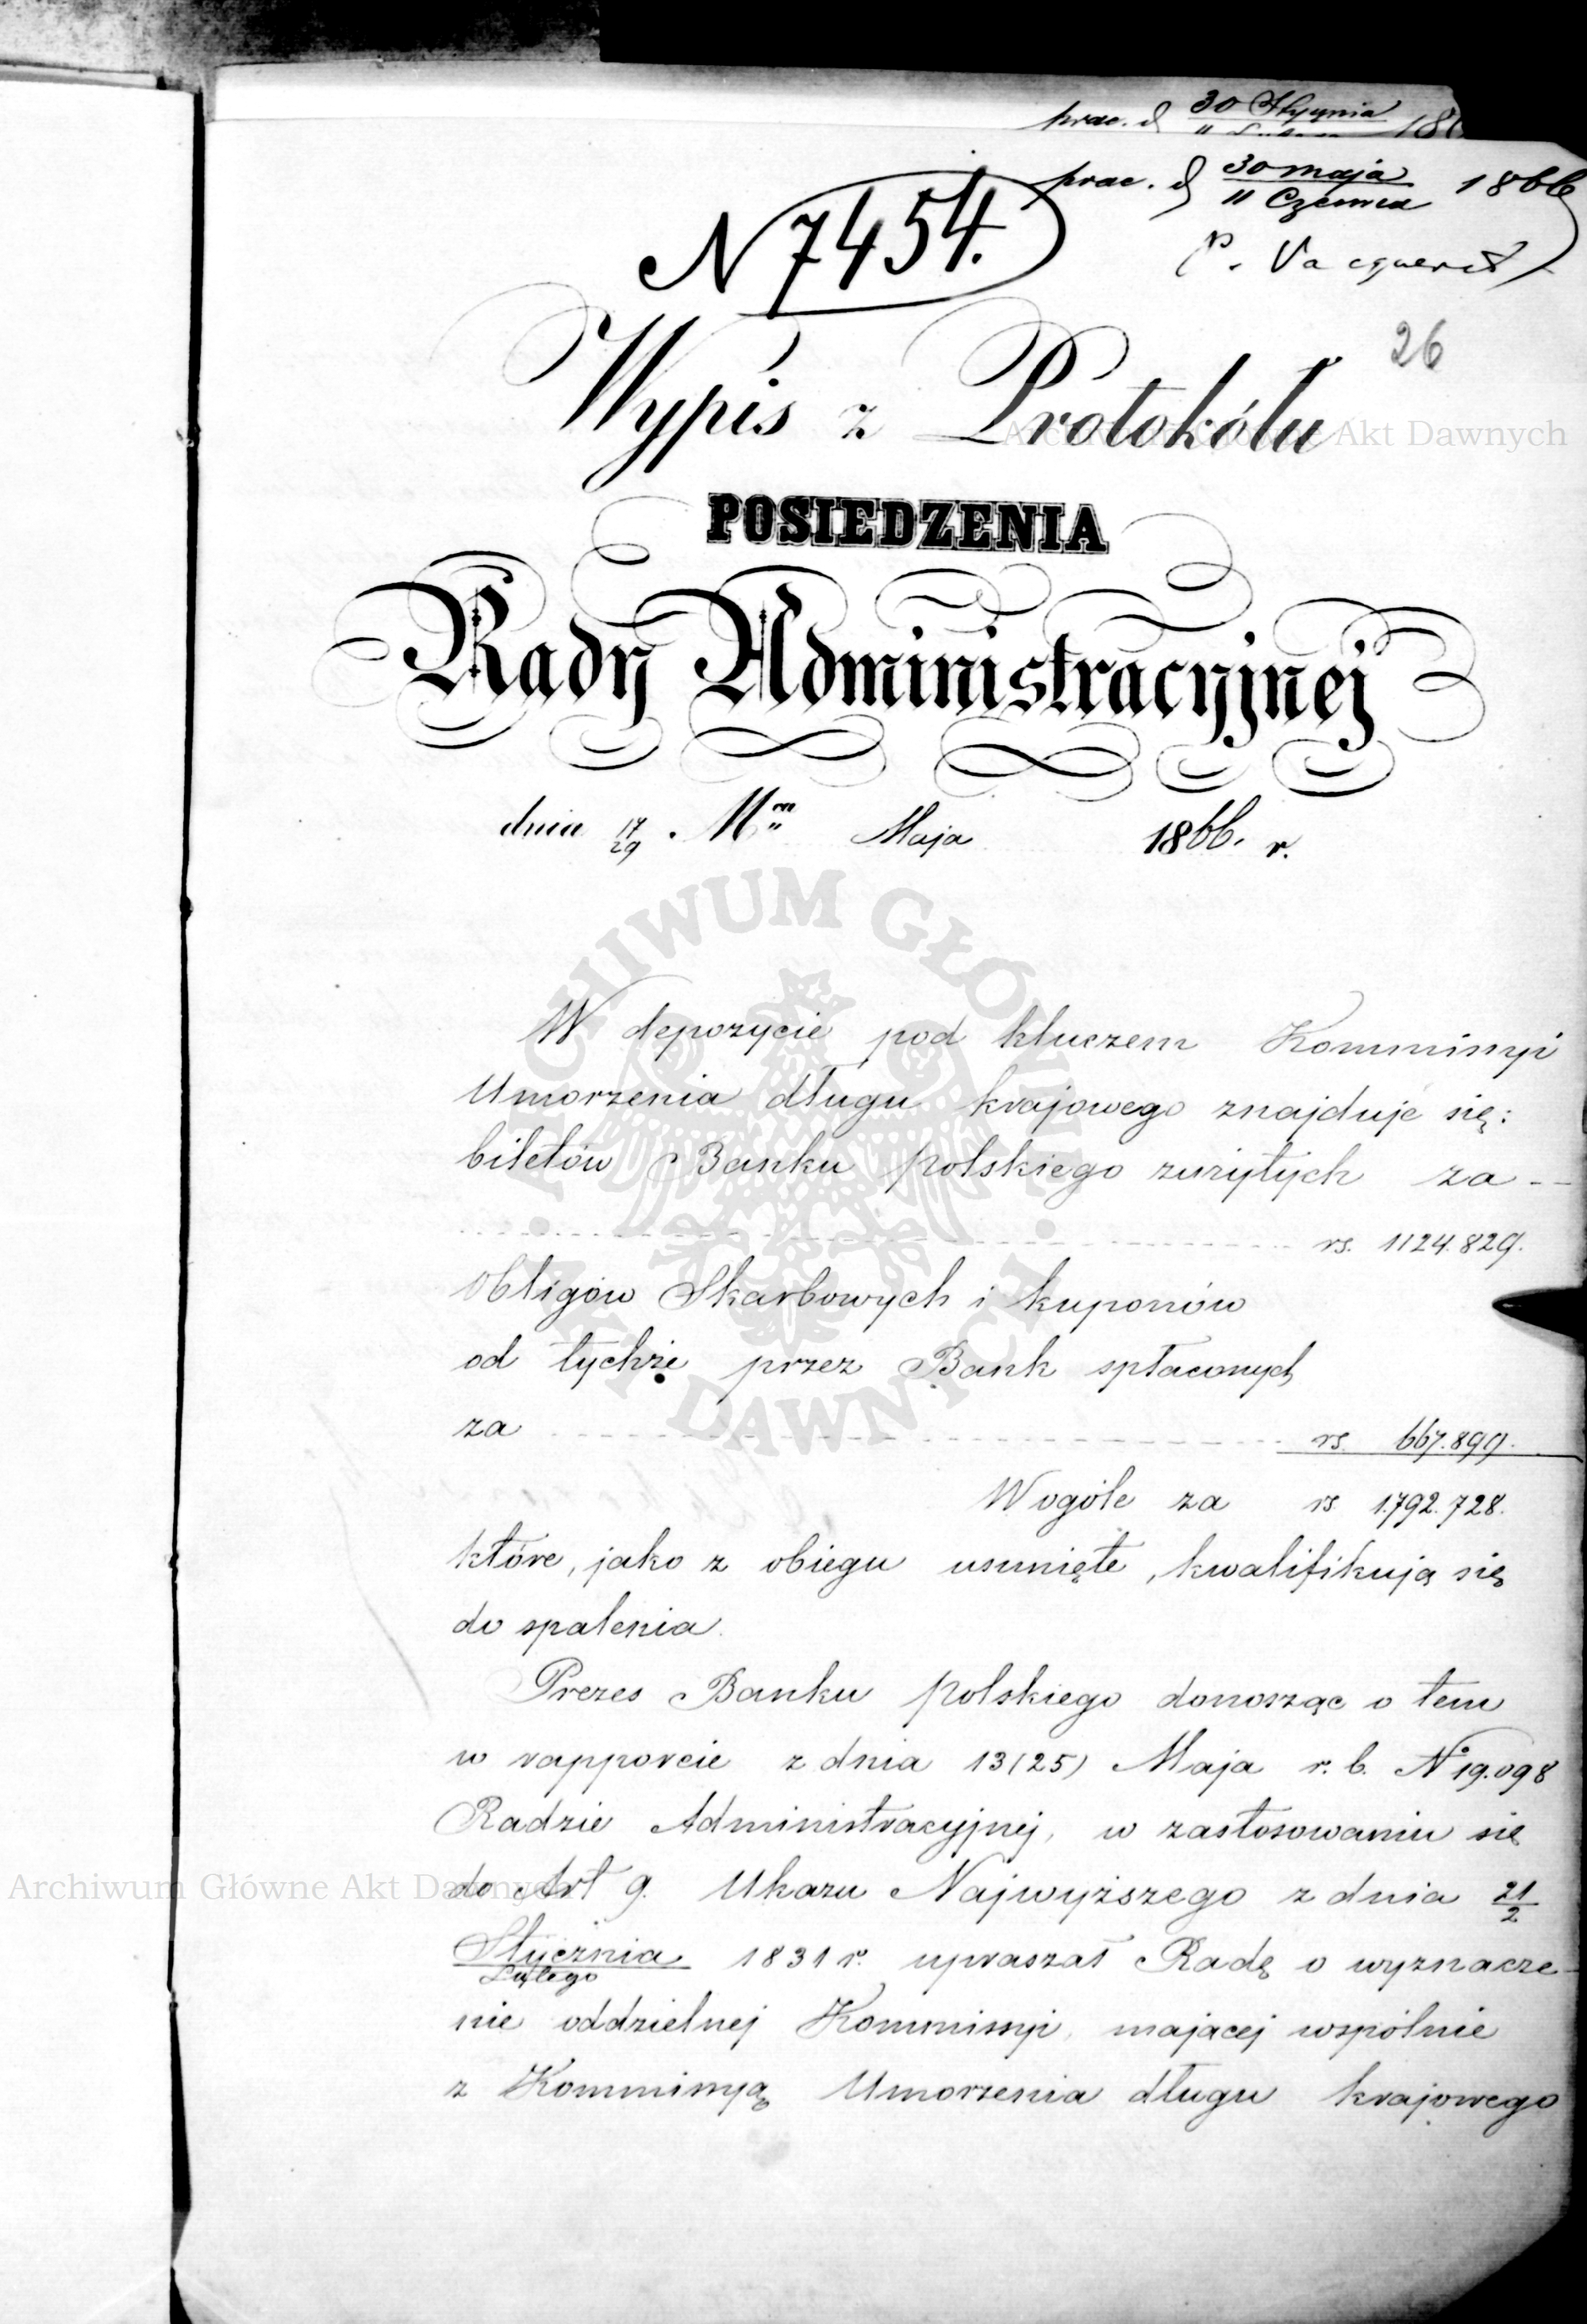 prac. d 30 Stycznia 186
prac. d 30 maja 1866
11 Czerwca
N 7454.
P.
26
Wypis z Protokółu
POSIEDZENIA
Rady Administracyjnej
dnia 17/29 Mca Maja 1866. r.
W depozycie pod kluczem Kommissyi
Umorzenia długu krajowego znajduje się:
biletów Banku polskiego zużytych za --
rs. 1124.829.
Obligów Skarbowych i kuponów
od tychże przez Bank spłaconych
za rs. 667.899.
Wogóle za rs 1.792.728.
które, jako z obiegu usunięte, kwalifikują się
do spalenia.
Prezes Banku polskiego donosząc o tem
w rapporcie z dnia 13 (25) Maja r. b. No 19.098
Radzie Administracyjnej, w zastosowaniu się
do Art 9. Ukazu Najwyższego z dnia 21/2
Stycznia/Lutego 1831 r. upraszał Radę o wyznacze-
nie oddzielnej Kommissyi, mającej wspólnie
z Kommissyą Umorzenia długu krajowego
Archiwum Główne Akt Dawnych
ARCHIWUM GŁÓWNE
AKT DAWNYCH
Archiwum Główne Akt Dawnych